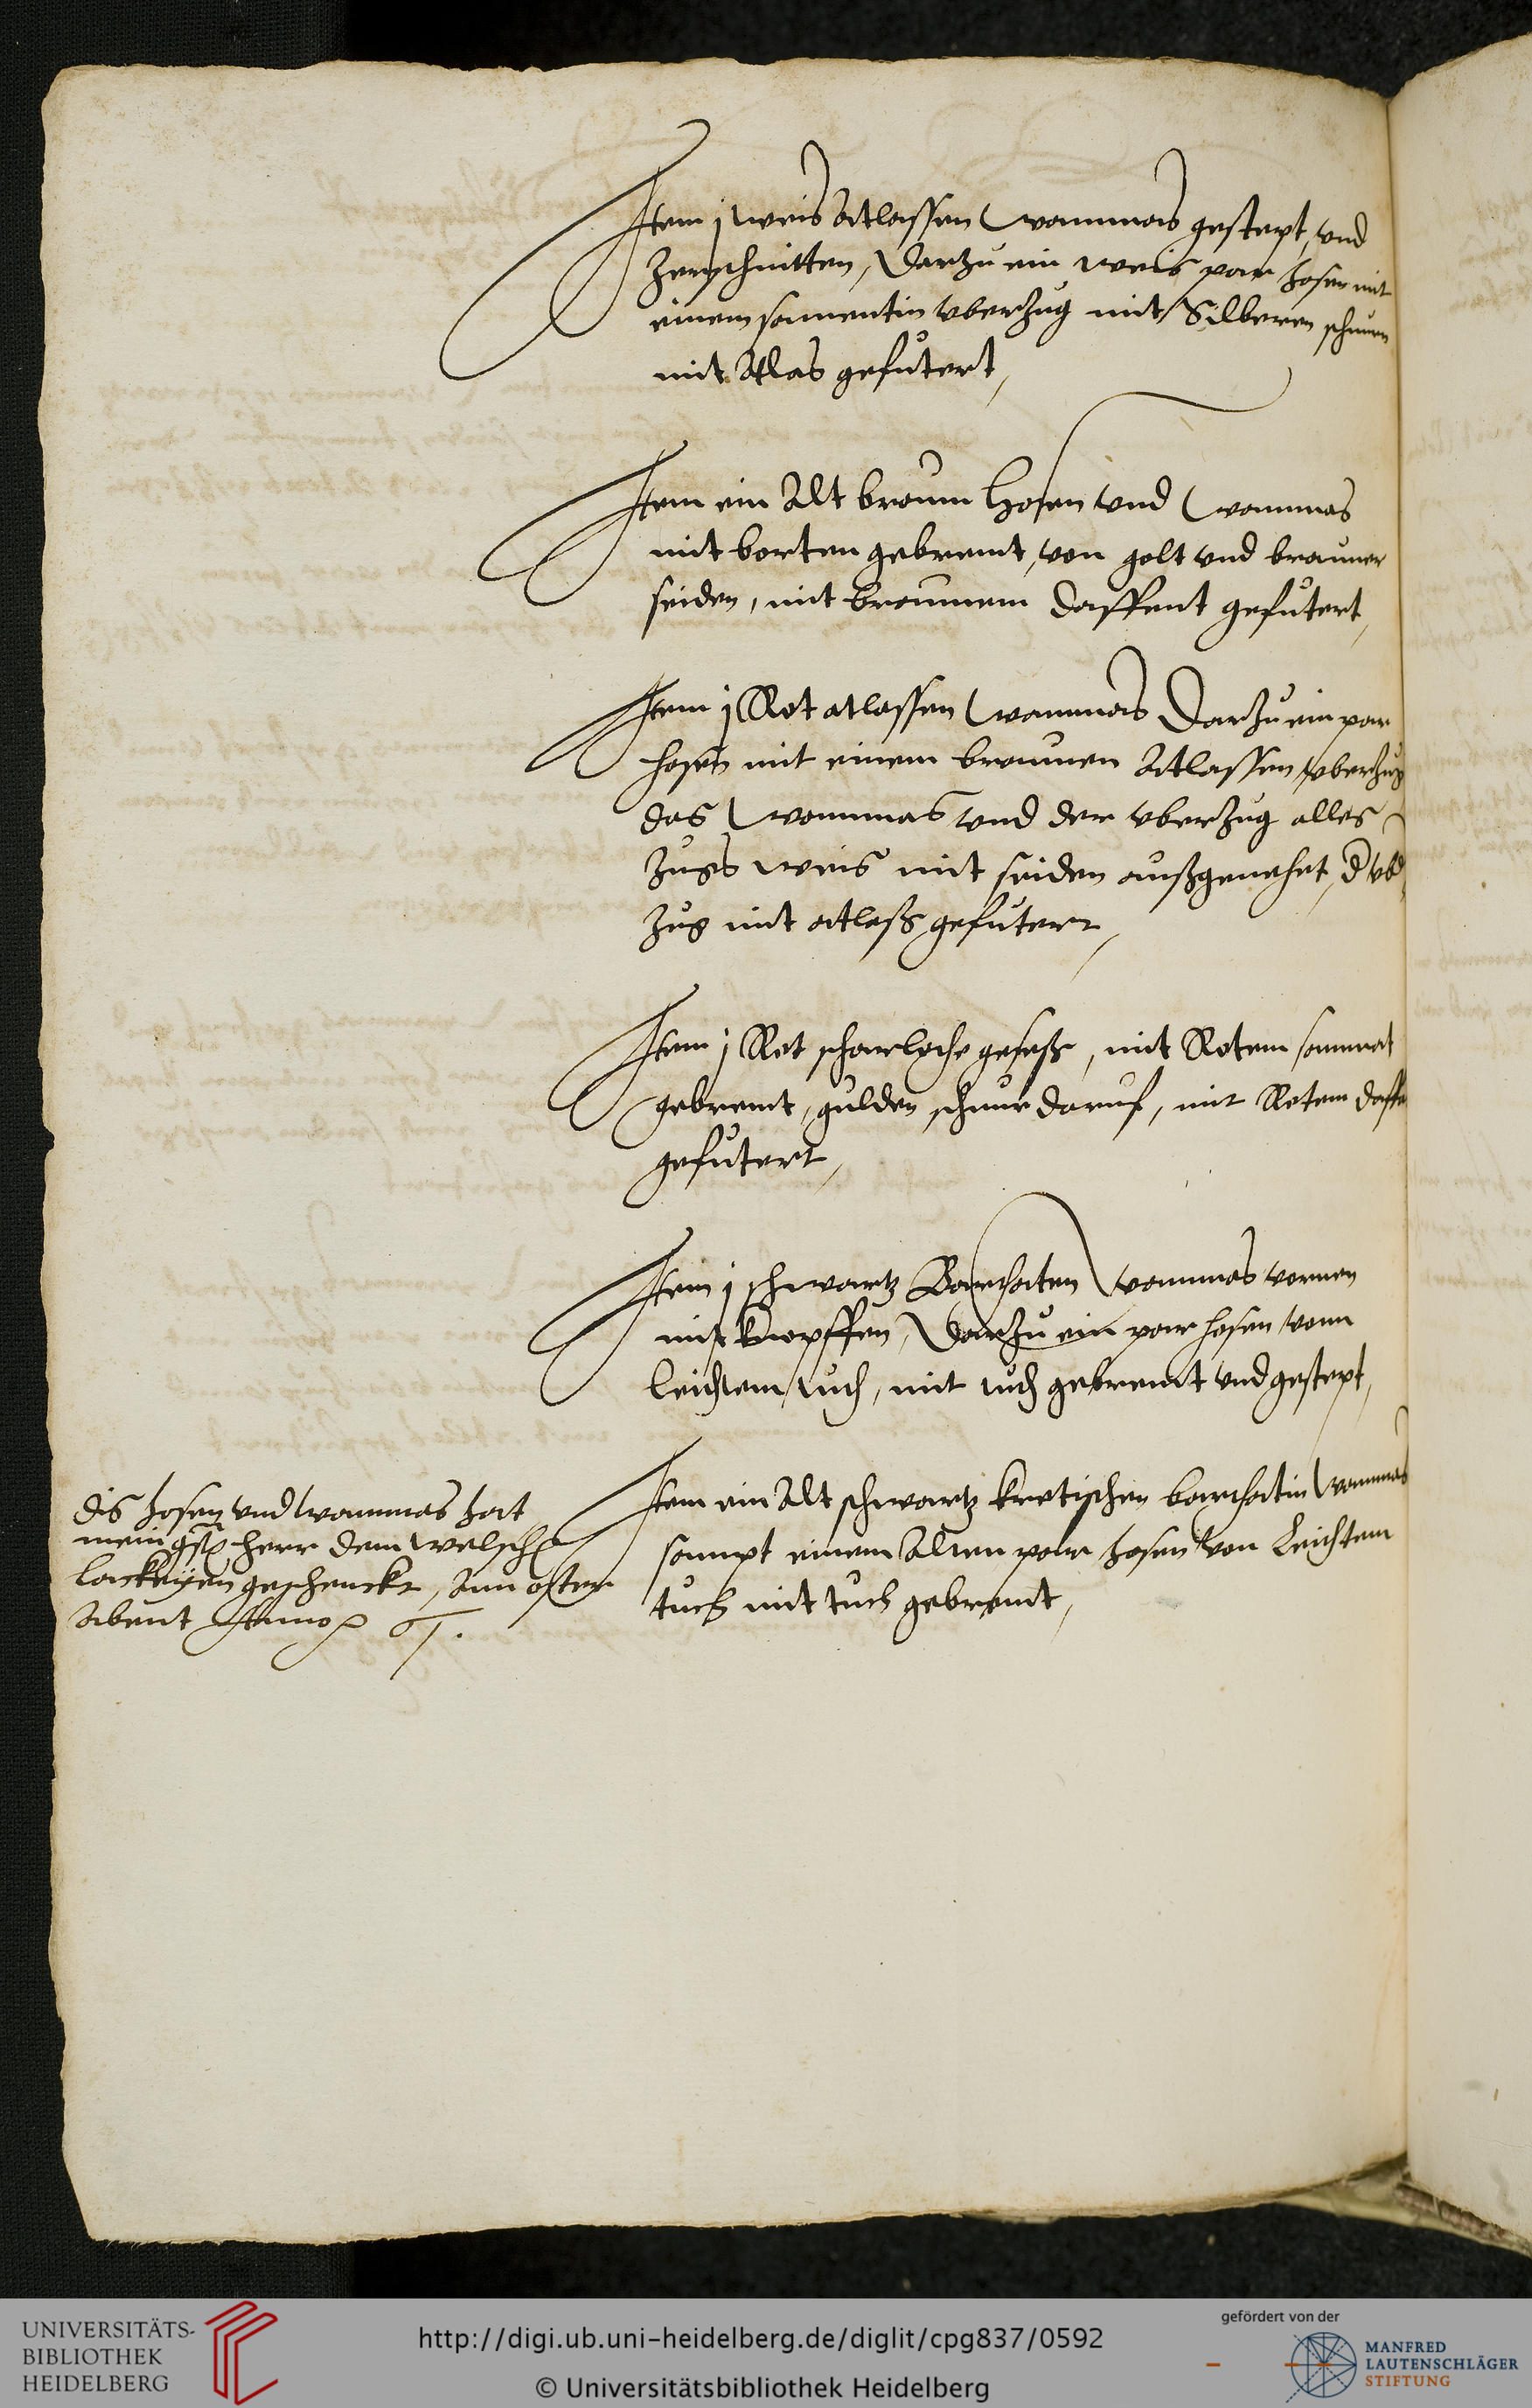 Item j weis Atlassen wammas gestept, vnd
zerschnitten, Darzu ein weis par hosen mit
einem sammentin vberzug mit Silberen schnuren
mit Atlas gefutert,
Item ein Alt braun hosen vnd wammas
mit borten gebremt, von golt vnd brauner
seiden, mit braunem daffent gefutert,
Item j Rot atlassen wammas Darzu ein par
hosen mit einem braunen Atlassen vberzug
das wammas vnd der vberzug alles
zugs weis mit seiden außgenehet, d vb
zug mit atlaß gefutert,
Item j Rot scharlache geseß, mit Rotem sammat
gebremt, gulden schnur daruf, mit Rotem daffe
gefutert,
Item j schwartz Barchaten wammas vornen
mit knopffen, Darzu ein par hosen vonn
leichtem tuch, mit tuch gebremt vnd gestept,
Item ein Alt schwartz barchatin wammas
sampt einem Alten par hosen von Leichtem
tuch mit tuch gebremt,
dis hosen vnd wammas hat
mein gst herr dem welsch
lackeyen geschenckt, Ann oster
Abent Anno 61.
UNIVERSITÄTS-
BIBLIOTHEK
HEIDELBERG
http://digi.ub.uni-heidelberg.de/diglit/cpg837/0592
© Universitätsbibliothek Heidelberg
gefördert von der
MANFRED
LAUTENSCHLÄGER
STIFTUNG